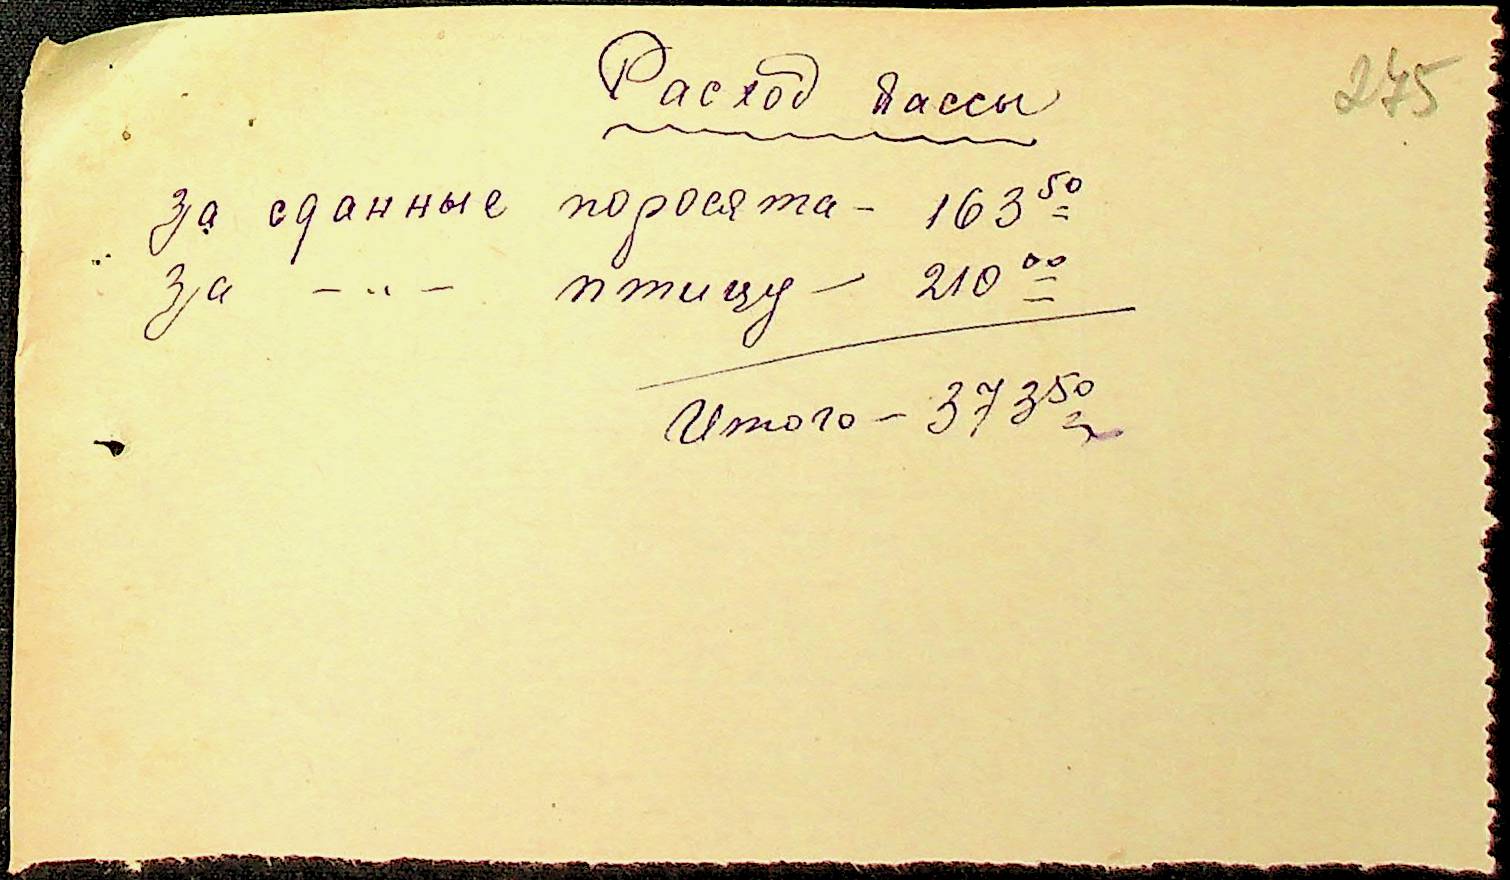 275
Расход кассы
За сданные поросята - 163 50
За - " - птицу - 210 00
Итого - 373 50